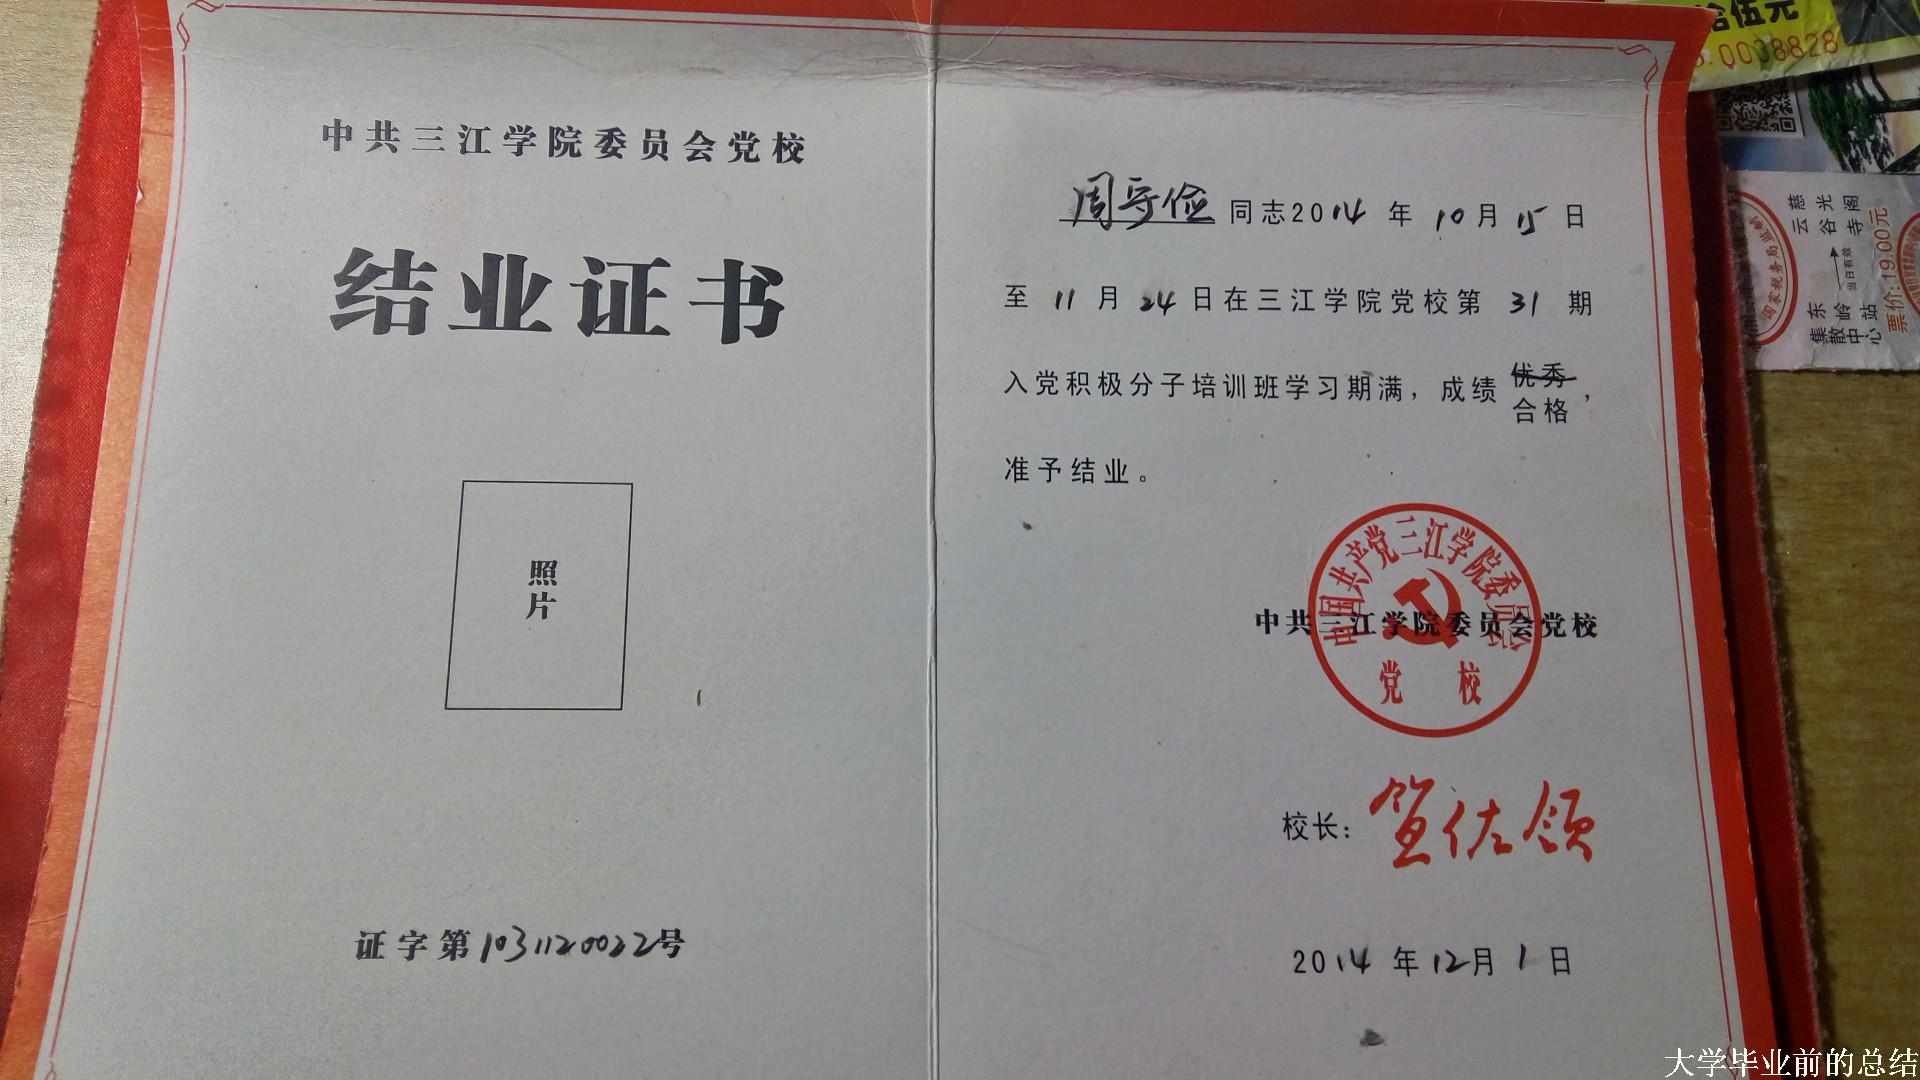 中共三江学院委员会党校
结业证书
照片
证字第1031120022号
周守俭同志2014年10月15日
至11月24日在三江学院党校第31期
入党积极分子培训班学习期满，成绩优秀合格，
准予结业。
中国共产党三江学院委员会
党校
中共三江学院委员会党校
校长：笪佐领
2014年12月1日
拾伍元
0038828
国家税务局监制
慈光阁
云谷寺
当日有效
东岭站
集散中心
票价:19.00元
大学毕业前的总结